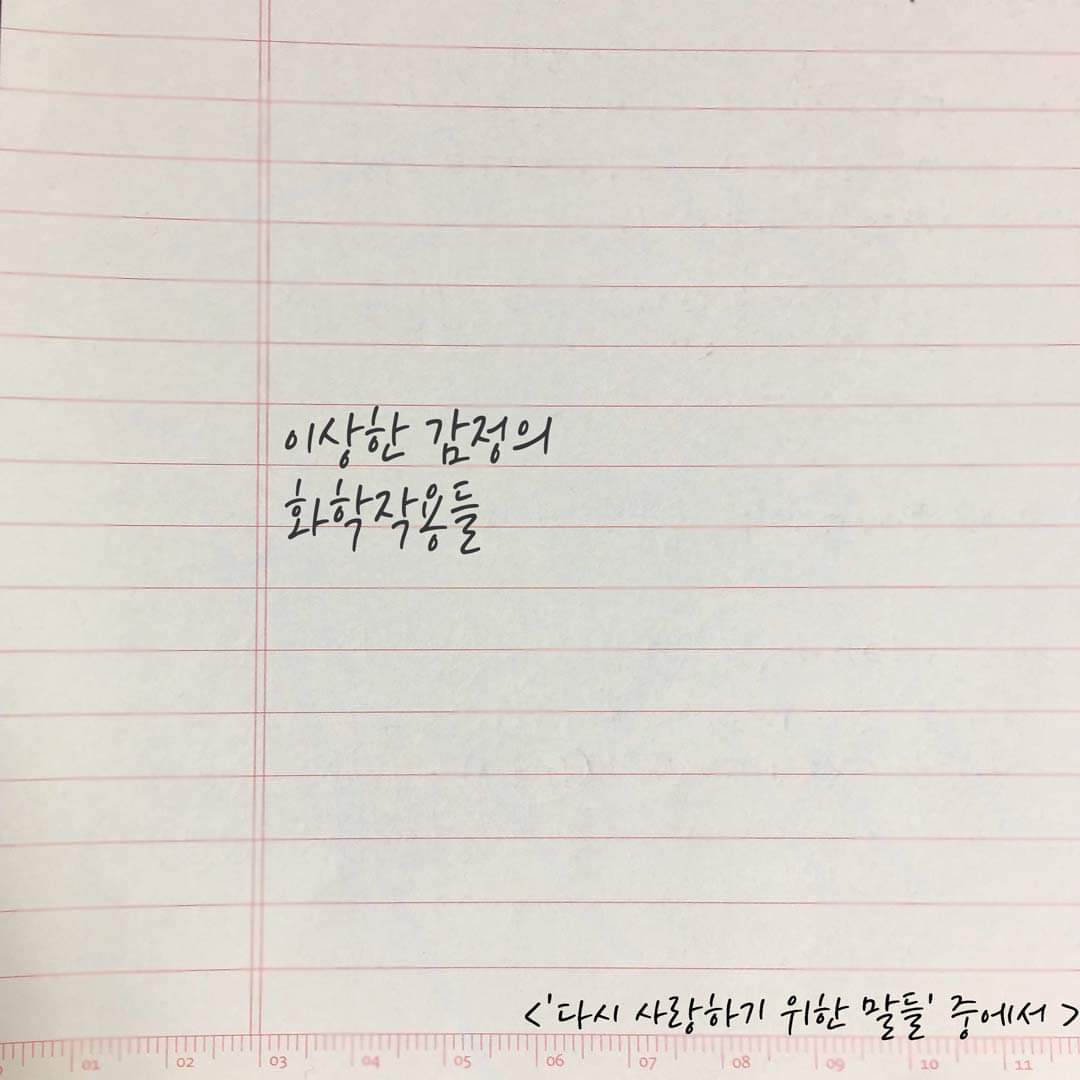 이상한 감정의
화학작용들
<'다시 사랑하기 위한 말들' 중에서 >
01 02 03 04 05 06 07 08 09 10 11